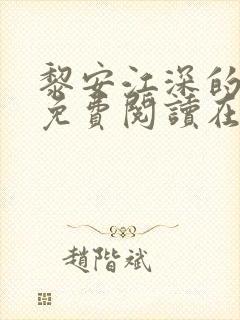 黎安江深的
免費閱讀在
趙階斌